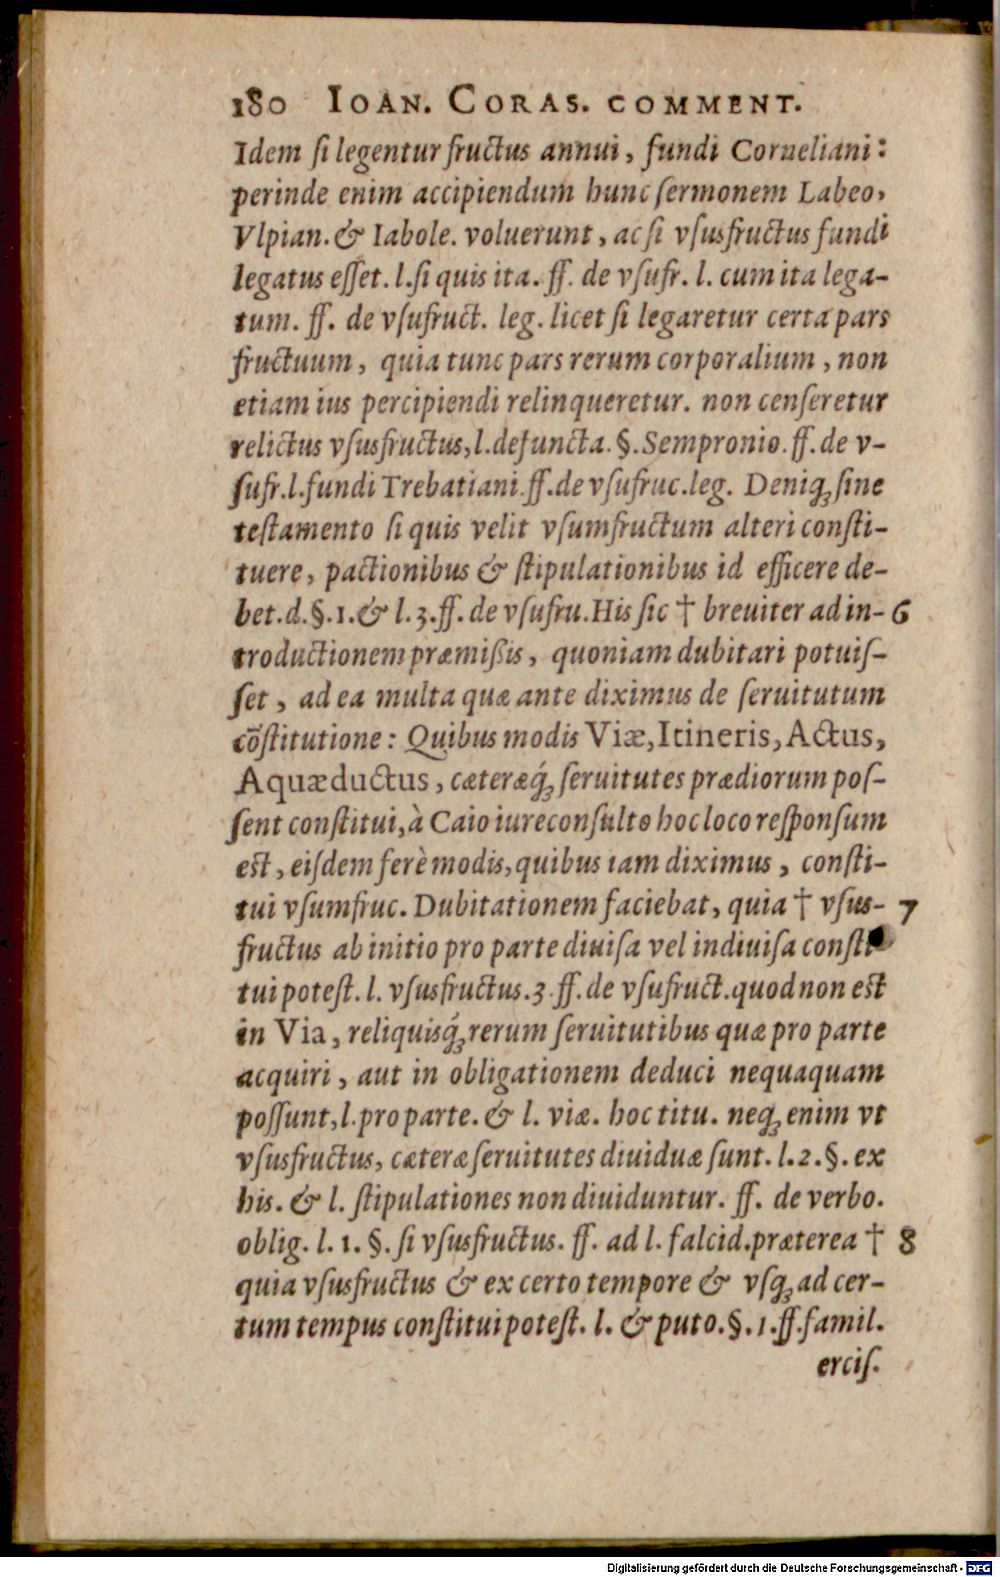 180 IOAN. CORAS. COMMENT.
Idem ſi legentur fructus annui, fundi Corneliani:
perinde enim accipiendum hunc ſermonem Labeo,
Vlpian. & Iabole. voluerunt, ac ſi vſusfructus fundi
legatus eſſet. l. ſi quis ita. ff. de vſufr. l. cum ita lega-
tum. ff. de vſufruct. leg. licet ſi legaretur certa pars
fructuum, quia tunc pars rerum corporalium, non
etiam ius percipiendi relinqueretur. non cenſeretur
relictus vſusfructus, l. defuncta. §. Sempronio. ff. de v-
ſufr. l. fundi Trebatiani ff. de vſufruc. leg. Deniqꝫ ſine
teſtamento ſi quis velit vſumfructum alteri conſti-
tuere, pactionibus & ſtipulationibus id efficere de-
bet. d. §. 1. & l. 3. ff. de vſufru. His ſic † breuiter ad in- 6
troductionem præmißis, quoniam dubitari potuiſ-
ſet, ad ea multa quæ ante diximus de ſeruitutum
cõſtitutione: Quibus modis Viæ, Itineris, Actus,
Aquæductus, cæteræq́ꝫ ſeruitutes prædiorum poſ-
ſent conſtitui, à Caio iureconſulto hoc loco reſponſum
eſt, eiſdem ferè modis, quibus iam diximus, conſti-
tui vſumfruc. Dubitationem faciebat, quia † vſus- 7
fructus ab initio pro parte diuiſa vel indiuiſa conſti
tui poteſt. l. vſusfructus. 3. ff. de vſufruct. quod non eſt
in Via, reliquisq́ꝫ rerum ſeruitutibus quæ pro parte
acquiri, aut in obligationem deduci nequaquam
poſſunt, l. pro parte. & l. viæ. hoc titu. neqꝫ enim vt
vſusfructus, cæteræ ſeruitutes diuiduæ ſunt. l. 2. §. ex
his. & l. ſtipulationes non diuiduntur. ff. de verbo.
oblig. l. 1. §. ſi vſusfructus. ff. ad l. falcid. præterea † 8
quia vſusfructus & ex certo tempore & vſqꝫ ad cer-
tum tempus conſtitui poteſt. l. & puto. §. 1. ff. famil.
erciſ.
Digitalisierung gefördert durch die Deutsche Forschungsgemeinschaft - DFG